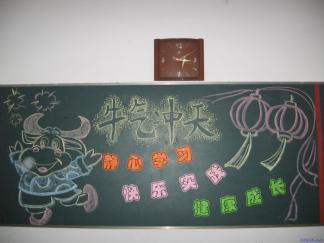 牛气冲天
静心学习
快乐实践
健康成长